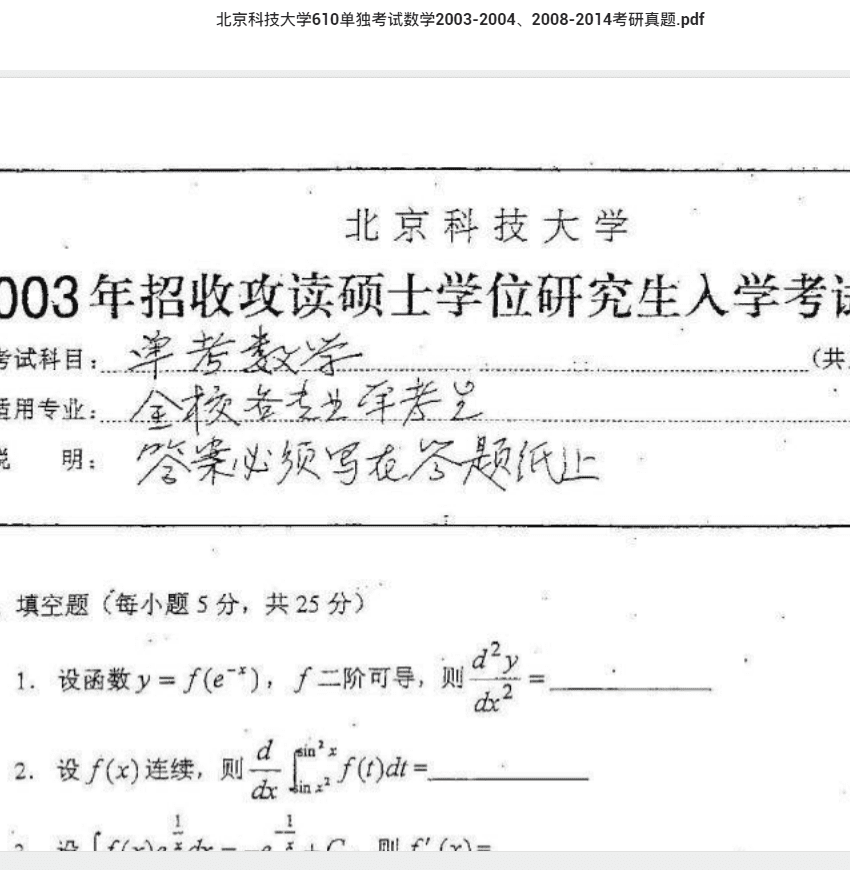 北京科技大学610单独考试数学2003-2004、2008-2014考研真题.pdf
北京科技大学
003年招收攻读硕士学位研究生入学考试
考试科目：单考数学（共
适用专业：全校各专业单考生
说 明：答案必须写在答题纸上
填空题（每小题 5 分，共 25 分）
1. 设函数 y = f(e^{-x})，f 二阶可导，则 \frac{d^2y}{dx^2} = ______
2. 设 f(x) 连续，则 \frac{d}{dx} \int_{\sin x^2}^{\sin^2 x} f(t)dt = ______
3. 设 \int f(x)e^{\frac{1}{x}}dx = -e^{\frac{1}{x}} + C，则 f'(x) =